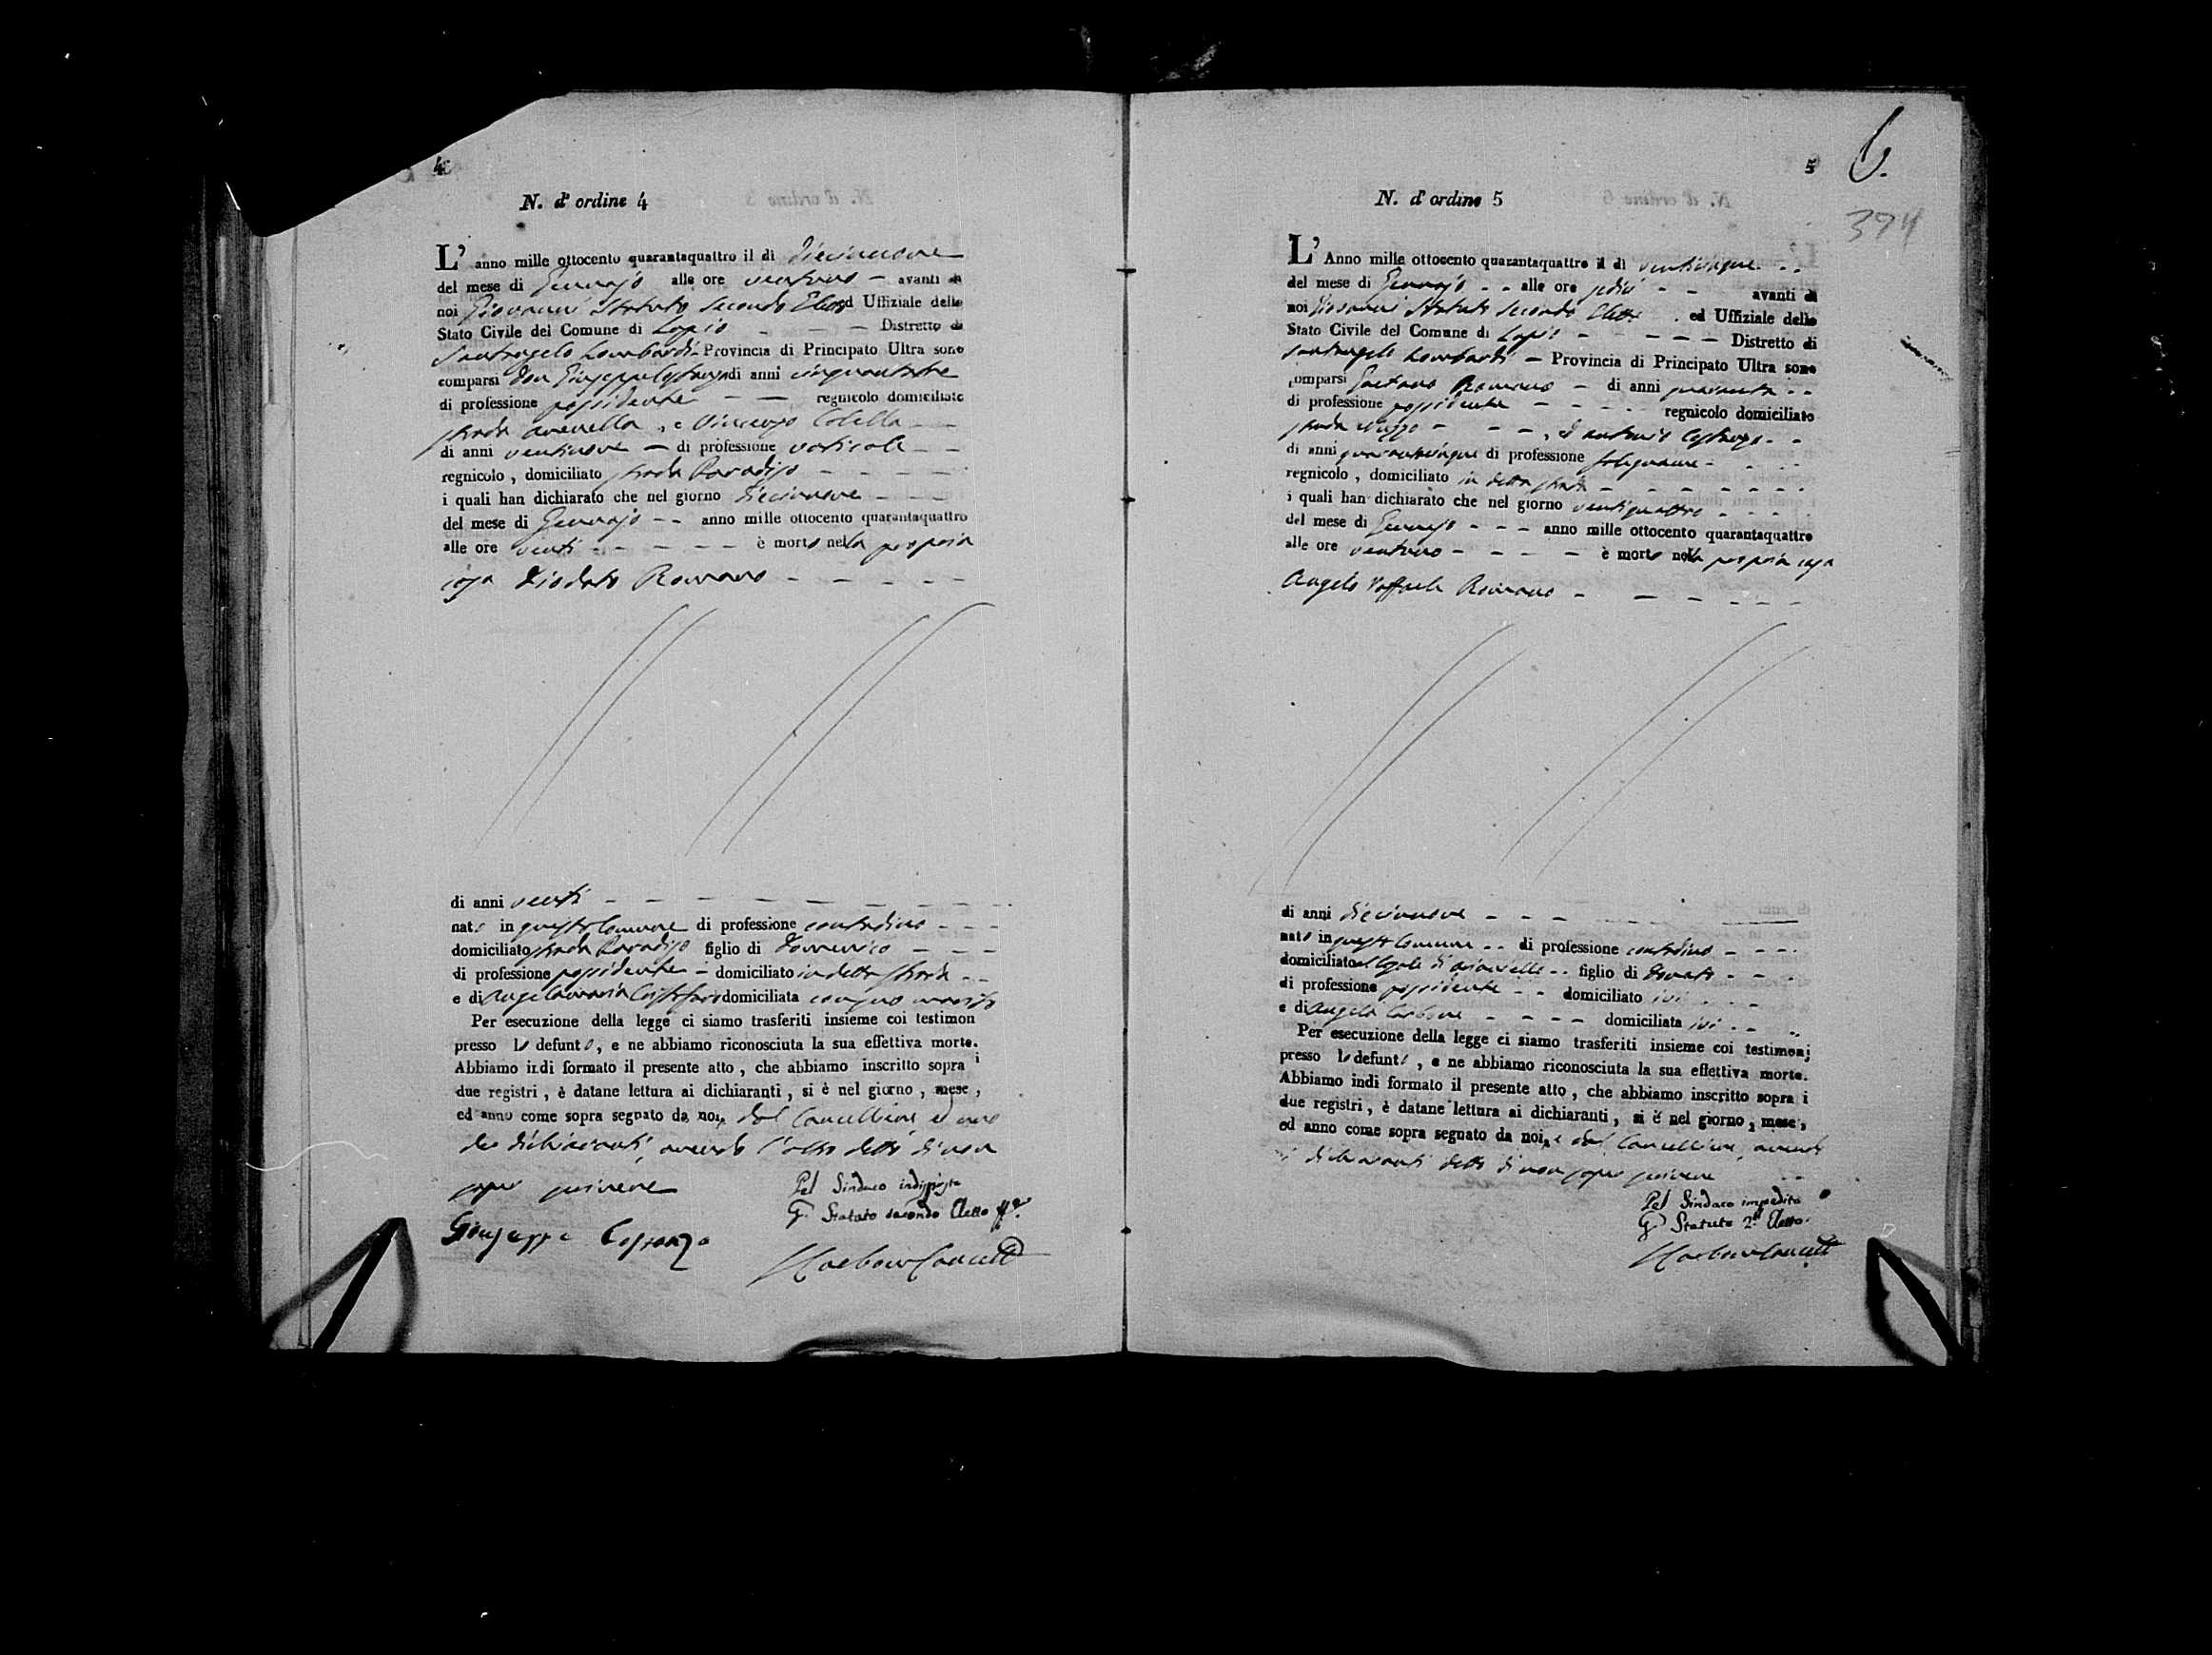 4
N. d' ordine 4
L' anno mille ottocento quarantaquattro il dì diecinnove
del mese di Gennajo alle ore ventuno - avanti di
noi Giovanni Statuto Secondo Eletto ed Uffiziale dello
Stato Civile del Comune di Lapio - - - Distretto di
Santangelo Lombardi - Provincia di Principato Ultra sono
comparsi Don Giuseppe di anni cinquantatre
di professione possidente - - regnicolo domiciliato
strada , e Vincenzo Colella - -
di anni ventinove - di professione - -
regnicolo , domiciliato strada Paradiso - - - - -
i quali han dichiarato che nel giorno diecinnove - - -
del mese di Gennajo - - anno mille ottocento quarantaquattro
alle ore venti - - - - - è morto nella propria
casa Diodato Romano - - - - -
di anni venti - - - - - - - - -
nato in questo Comune di professione contadino - - -
domiciliato strada Paradiso figlio di Domenico - - -
di professione possidente - domiciliato in detta strada - -
e di Angelamaria domiciliata
Per esecuzione della legge ci siamo trasferiti insieme coi testimon
presso lo defunto, e ne abbiamo riconosciuta la sua effettiva morte.
Abbiamo indi formato il presente atto , che abbiamo inscritto sopra i
due registri , è datane lettura ai dichiaranti , si è nel giorno , mese ,
ed anno come sopra segnato da noi, dal Cancelliere e uno
dei dichiaranti, avendo l'altro detto di non
saper scrivere
Pel Sindaco indisposto
G. Statuto secondo Eletto
Giuseppe
5
6.
394
N. d' ordine 5
L' Anno mille ottocento quarantaquattro il dì venticinque - -
del mese di Gennajo - - alle ore sedici - - avanti di
noi Giovanni Statuto Secondo Eletto ed Uffiziale dello
Stato Civile del Comune di Lapio - - - - Distretto di
Santangelo Lombardi - Provincia di Principato Ultra sono
comparsi Gaetano Romano - di anni quaranta - -
di professione possidente - - - - regnicolo domiciliato
strada - - - , ed Antonio - -
di anni quarantacinque di professione falegname - - - -
regnicolo , domiciliato in detta strada - - - - - - -
i quali han dichiarato che nel giorno ventiquattro - - -
del mese di Gennajo - - - anno mille ottocento quarantaquattro
alle ore ventuno - - - - è morto nella propria casa
Angelo Raffaele Romano - - - - - -
di anni diecinnove - - -
nato in questo Comune - - di professione contadino - - -
domiciliato - - figlio di Donato - - -
di professione possidente - - domiciliato ivi
e di Angela Carbone - - - - domiciliata ivi - -
Per esecuzione della legge ci siamo trasferiti insieme coi testimonj
presso lo defunto , e ne abbiamo riconosciuta la sua effettiva morte.
Abbiamo indi formato il presente atto , che abbiamo inscritto sopra i
due registri , è datane lettura ai dichiaranti , si è nel giorno , mese ,
ed anno come sopra segnato da noi, e dal Cancelliere, avendo
i dichiaranti detto di non saper scrivere
Pel Sindaco impedito
G. Statuto 2° Eletto